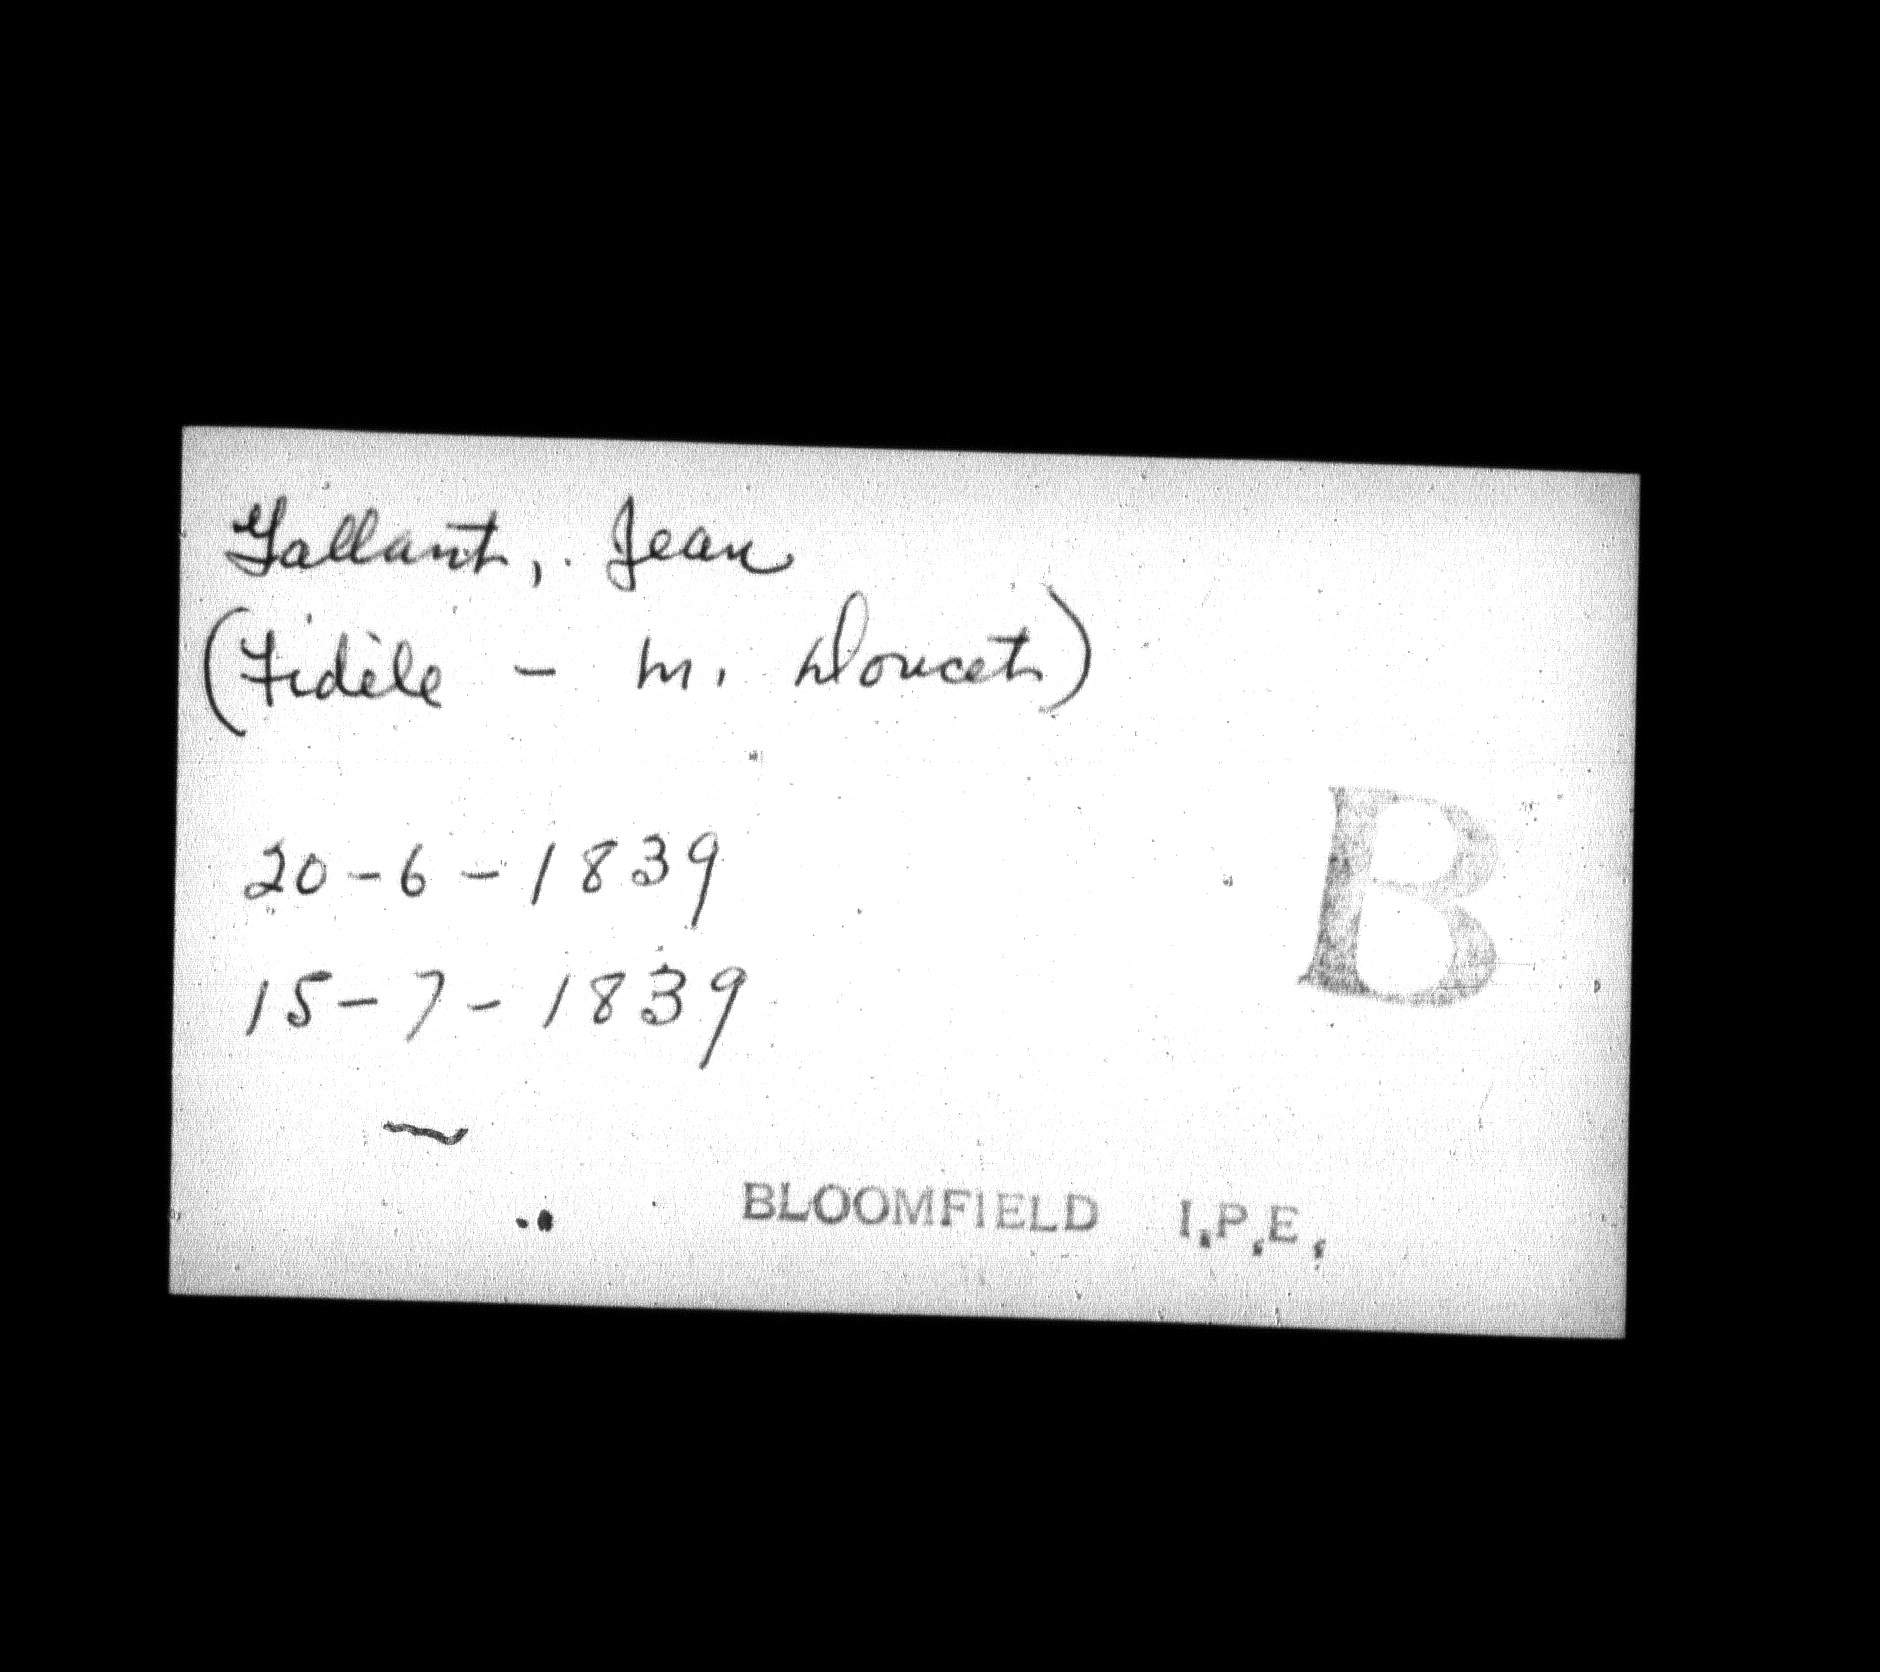 Gallant, Jean
(Fidèle - m. Doucet)
20-6-1839
B
15-7-1839
BLOOMFIELD I.P.E.